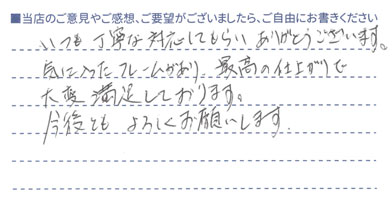 ■当店のご意見やご感想、ご要望がございましたら、ご自由にお書きください
いつも丁寧な対応してもらいありがとうございます。
気に入ったフレームがあり、最高の仕上がりで
大変満足しております。
今後とも よろしくお願いします.